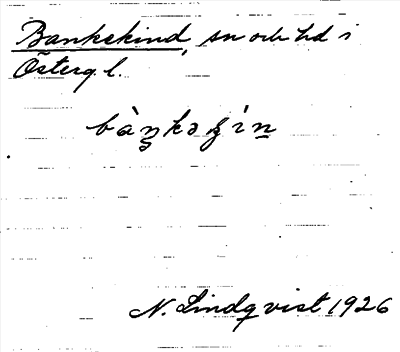 Bankekind, sn och hd i
Österg. l.
bàŋkəʒín
N. Lindqvist 1926